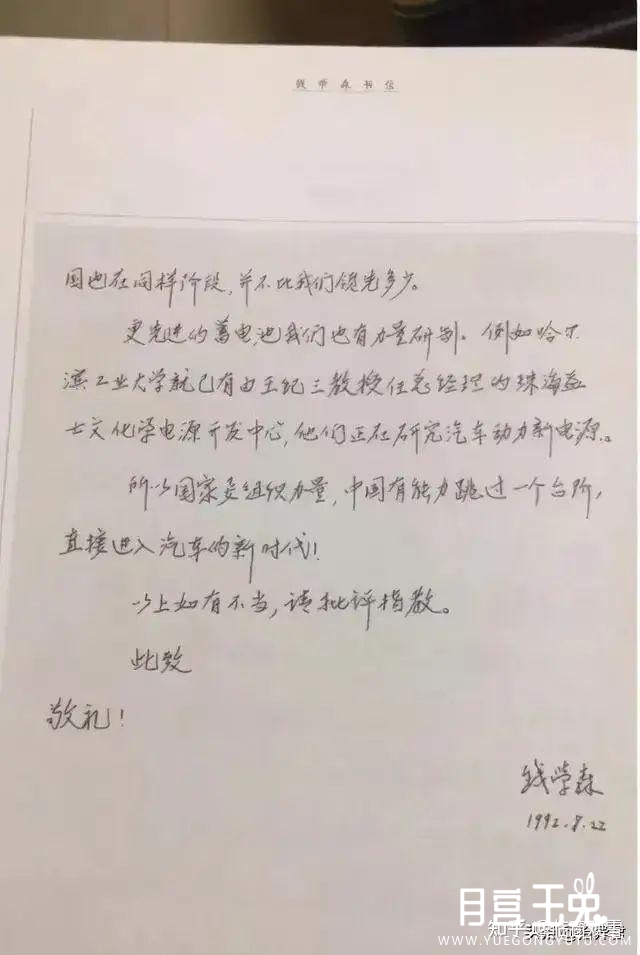 钱学森书信
国也在同样阶段,并不比我们领先多少。
更先进的蓄电池我们也有力量研制。例如哈尔
滨工业大学就已有由王纪三教授任总经理的珠海益
士文化学电源开发中心,他们正在研究汽车动力新电源。
所以国家要组织力量,中国有能力跳过一个台阶,
直接进入汽车的新时代!
以上如有不当,请批评指教。
此致
敬礼!
钱学森
1992.8.22
月宫玉兔
知乎
WWW.YUEGONGYUTU.COM